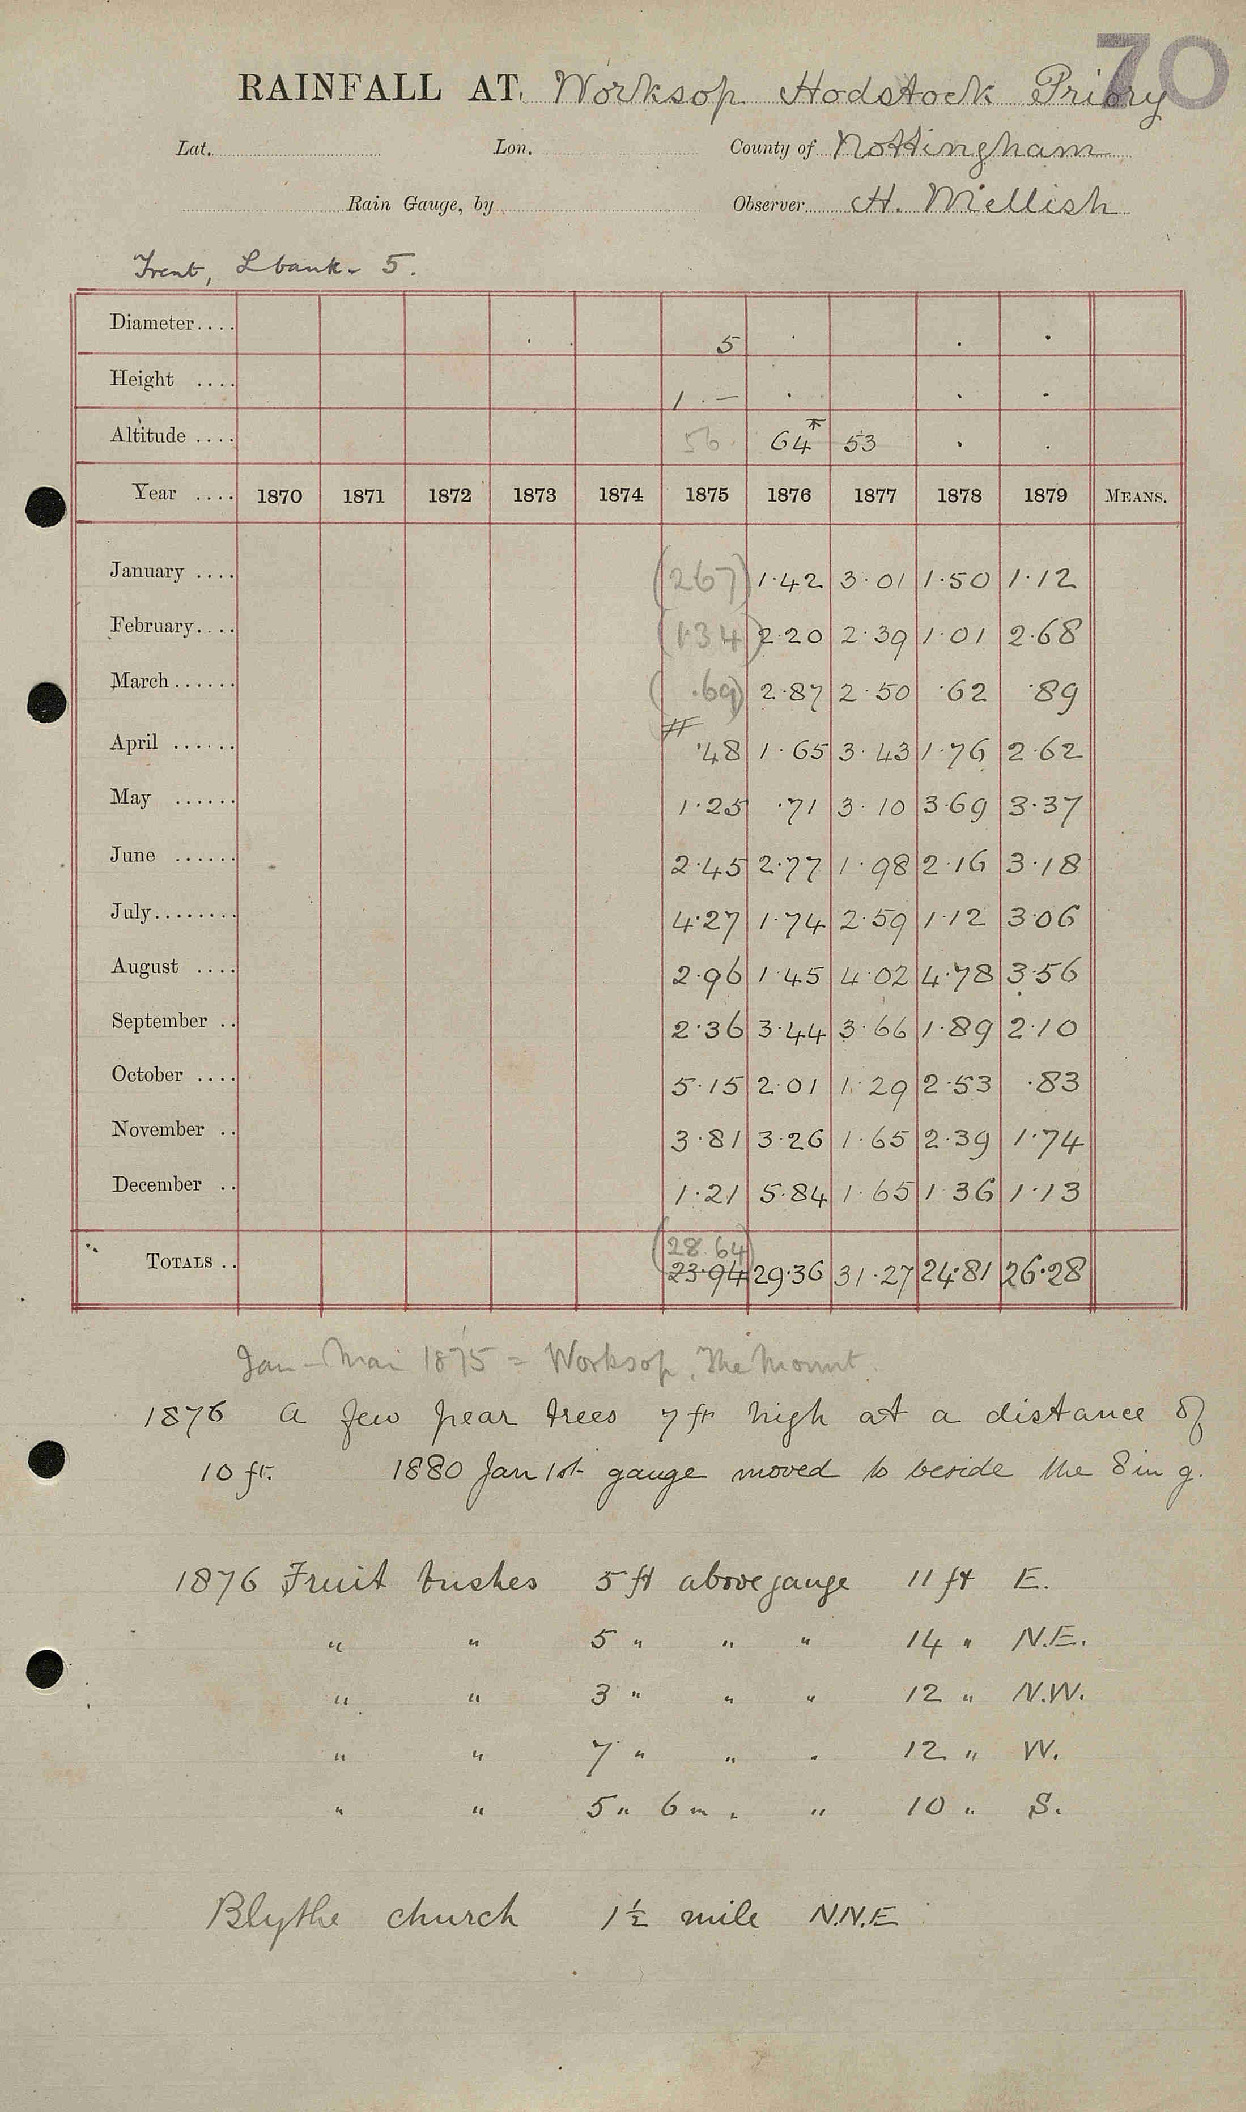 70
RAINFALL AT Worksop Hodstock Priory
Lat. Lon. County of Nottingham
Rain Gauge, by Observer H. Mellish
Trent, L bank. 5.
Diameter.... 5 . . .
Height .... 1 . — . . .
Altitude .... 56 64* 53 . .
Year .... 1870 1871 1872 1873 1874 1875 1876 1877 1878 1879 MEANS.
January .... (267) 1·42 3·01 1·50 1·12
February.... (1·34) 2·20 2·39 1·01 2·68
March...... (·69) 2·87 2·50 ·62 ·89
April ...... ·48 1·65 3·43 1·76 2·62
May ...... 1·25 ·71 3·10 3·69 3·37
June ...... 2·45 2·77 1·98 2·16 3·18
July........ 4·27 1·74 2·59 1·12 3·06
August .... 2·96 1·45 4·02 4·78 3·56
September .. 2·36 3·44 3·66 1·89 2·10
October .... 5·15 2·01 1·29 2·53 ·83
November .. 3·81 3·26 1·65 2·39 1·74
December .. 1·21 5·84 1·65 1·36 1·13
(28.64)
TOTALS .. 23·94 29·36 31·27 24·81 26·28
Jan - Mar 1875 = Worksop, The Mount.
1876 A few pear trees 7 ft high at a distance of
10 ft. 1880 Jan 1st gauge moved to beside the 8 in g.
1876 Fruit bushes 5 ft above gauge 11 ft E.
" " 5 " " " 14 " N.E.
" " 3 " " " 12 " N.W.
" " 7 " " " 12 " W.
" " 5 " 6 in " " 10 " S.
Blythe church 1½ mile N.N.E